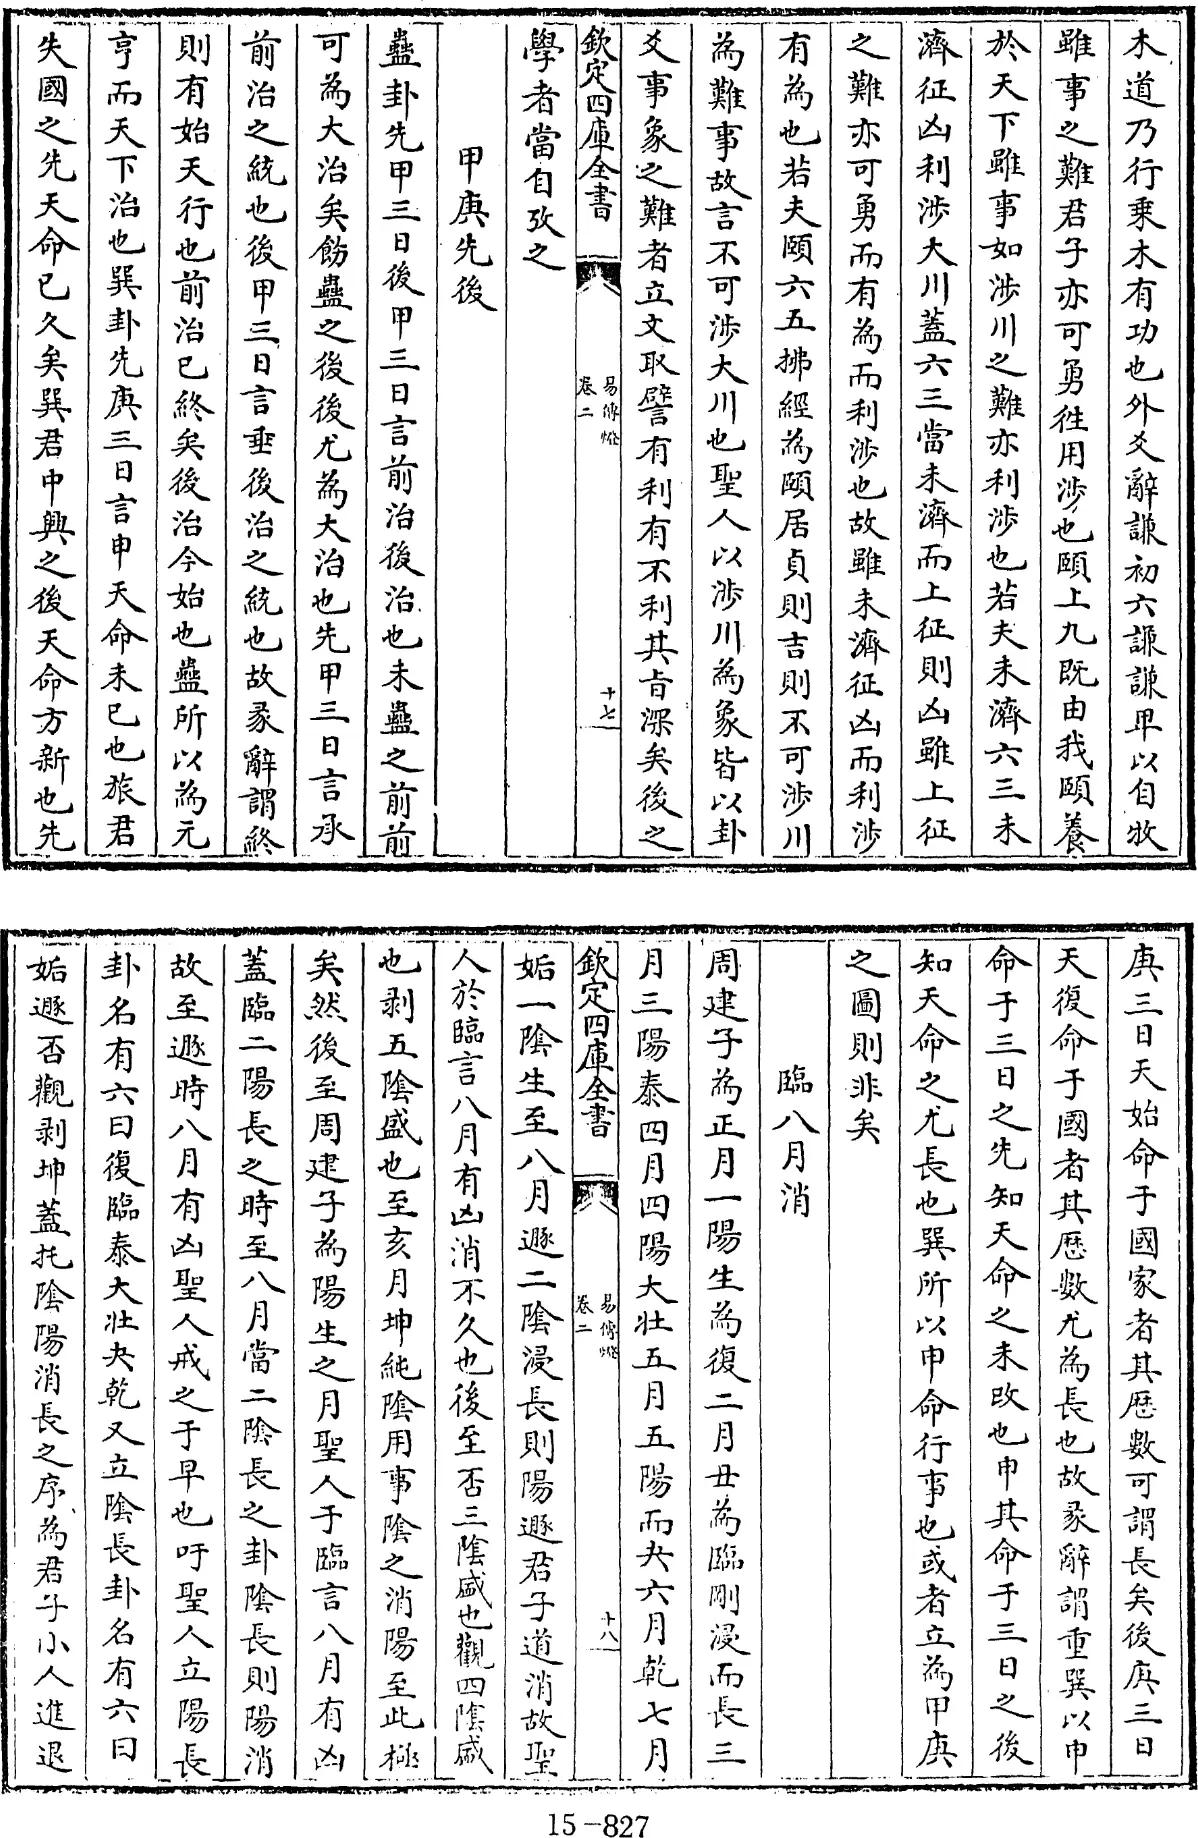 木道乃行乘木有功也外爻辭謙初六謙謙卑以自牧
雖事之難君子亦可勇往用涉也頤上九既由我頤養
於天下雖事如涉川之難亦利涉也若夫未濟六三未
濟征凶利涉大川蓋六三當未濟而上征則凶雖上征
之難亦可勇而有為而利涉也故雖未濟征凶而利涉
有為也若夫頤六五拂經為頤居貞則吉則不可涉川
為難事故言不可涉大川也聖人以涉川為象皆以卦
爻事象之難者立文取譬有利有不利其旨深矣後之
欽定四庫全書
易傳燈
卷二
十七
學者當自攷之
甲庚先後
蠱卦先甲三日後甲三日言前治後治也未蠱之前前
可為大治矣飭蠱之後後尤為大治也先甲三日言承
前治之統也後甲三日言垂後治之統也故彖辭謂終
則有始天行也前治已終矣後治今始也蠱所以為元
亨而天下治也巽卦先庚三日言申天命未已也旅君
失國之先天命已久矣巽君中興之後天命方新也先
庚三日天始命于國家者其歴數可謂長矣後庚三日
天復命于國者其歴數尤為長也故彖辭謂重巽以申
命于三日之先知天命之未改也申其命于三日之後
知天命之尤長也巽所以申命行事也或者立為甲庚
之圖則非矣
臨八月消
周建子為正月一陽生為復二月丑為臨剛浸而長三
月三陽泰四月四陽大壯五月五陽而夬六月乾七月
欽定四庫全書
易傳燈
卷二
十八
姤一陰生至八月遯二陰浸長則陽遯君子道消故聖
人於臨言八月有凶消不久也後至否三陰盛也觀四陰盛
也剥五陰盛也至亥月坤純陰用事陰之消陽至此極
矣然後至周建子為陽生之月聖人于臨言八月有凶
蓋臨二陽長之時至八月當二陰長之卦陰長則陽消
故至遯時八月有凶聖人戒之于早也吁聖人立陽長
卦名有六曰復臨泰大壯夬乾又立陰長卦名有六曰
姤遯否觀剥坤蓋扥陰陽消長之序為君子小人進退
15-827